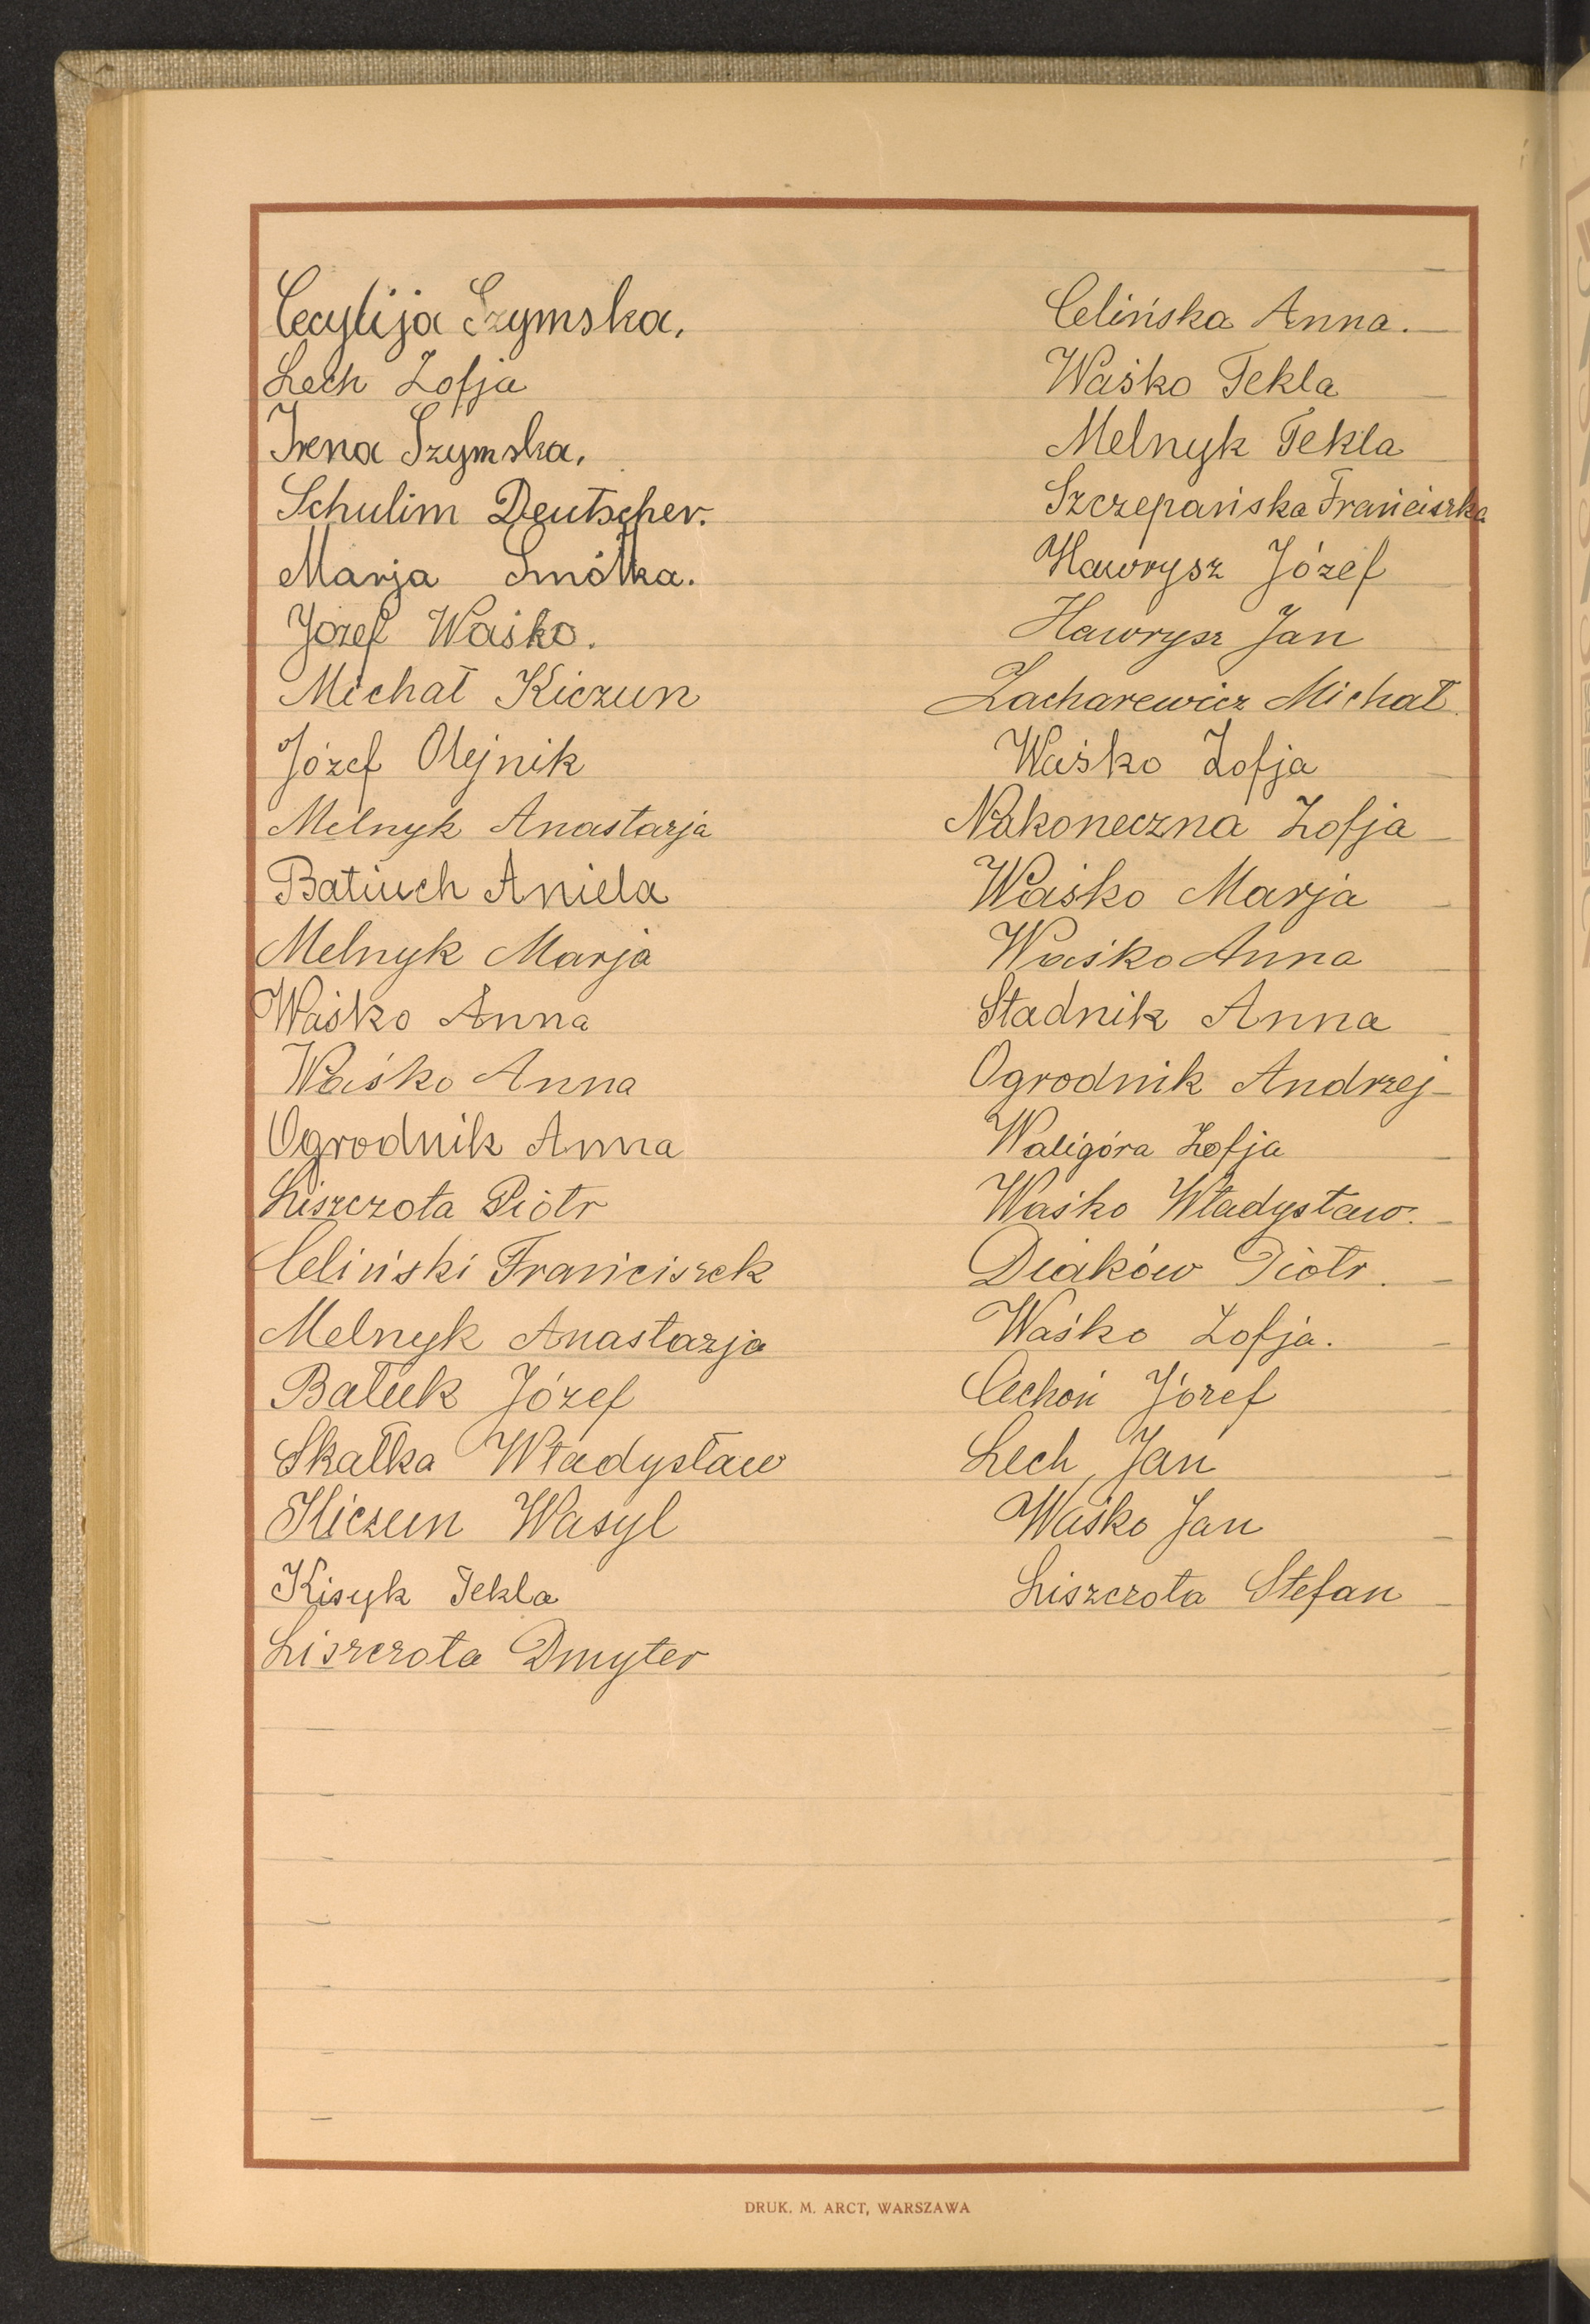 Cecylija Szymska.
Lech Zofja
Irena Szymska.
Schulim Deutscher.
Marja Smółka.
Józef Waśko.
Michał Kiczun
Józef Olejnik
Melnyk Anastazja
Batiuch Aniela
Melnyk Marja
Waśko Anna
Waśko Anna
Ogrodnik Anna
Liszczota Piotr
Celiński Franciszek
Melnyk Anastazja
Bałuk Józef
Skałka Władysław
Kiczun Wasyl
Kisyk Tekla
Liszczota Dmyter
Celińska Anna.
Waśko Tekla
Melnyk Tekla
Szczepańska Franciszka
Hawrysz Józef
Hawrysz Jan
Zacharewicz Michał
Waśko Zofja
Nakoneczna Zofja
Waśko Marja
Waśko Anna
Stadnik Anna
Ogrodnik Andrzej
Waligóra Zofja
Waśko Władysław.
Diaków Piotr.
Waśko Zofja.
Cechoń Józef
Lech Jan
Waśko Jan
Liszczota Stefan
DRUK. M. ARCT, WARSZAWA